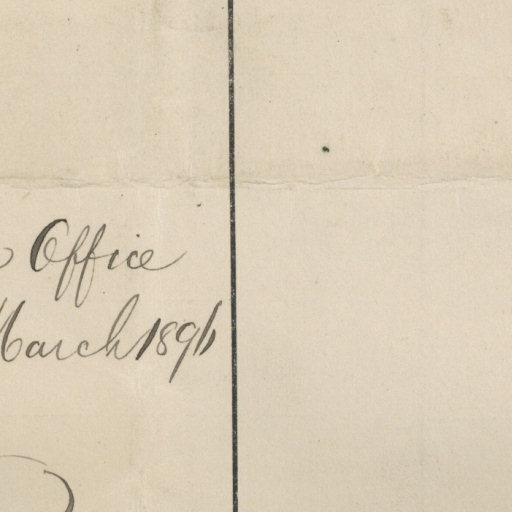 Office
March 1896